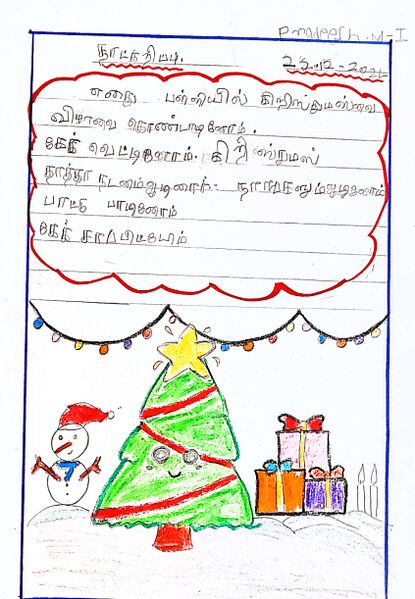 Praneesh.M-I
நாட்குறிப்பு.
எனது பள்ளியில் கிறிஸ்துமஸ்வை
விழாவை கொண்டாடினோம்.
கேக் வெட்டினோம். கிறிஸ்துமஸ்
தாத்தா நடனம்ஆடினார். நாங்களும்ஆடினோம்
பாட்டு பாடினோம்
கேக் சாப்பிட்டோம்